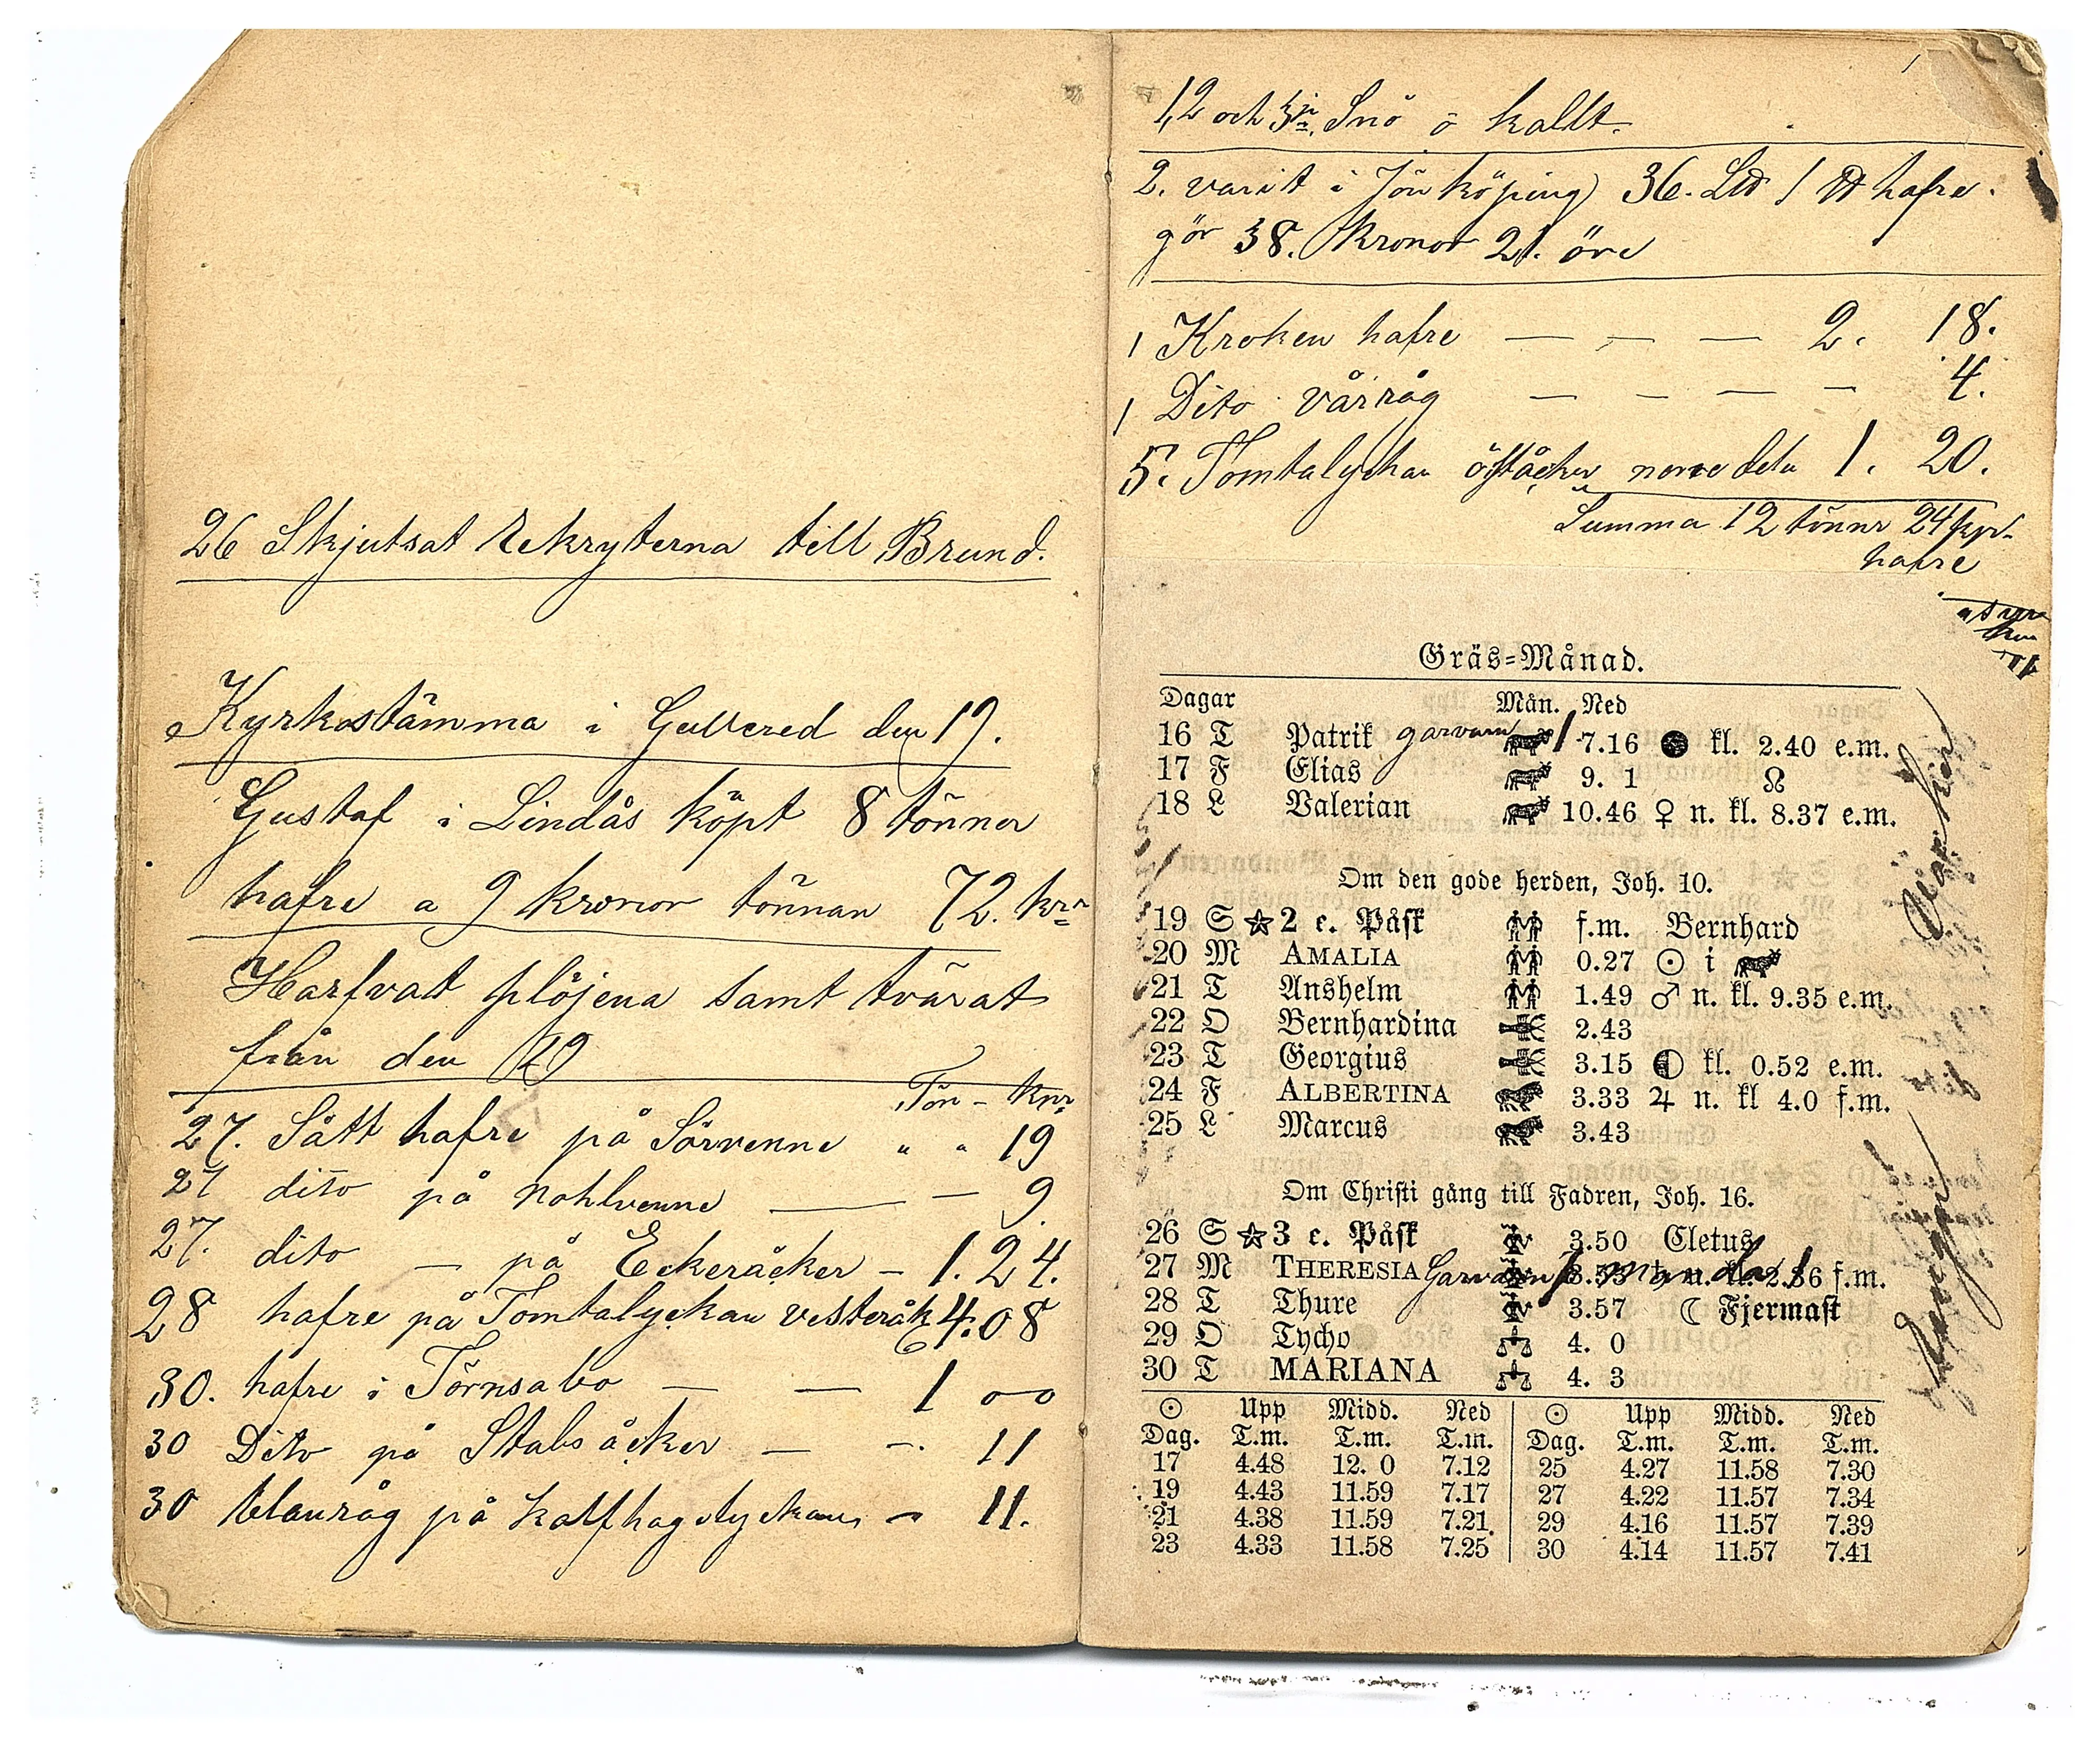 26 Skjutsat Rekryterna till Brund.
Kyrkostämma i Gullered den 19.
Gustaf i Lindås köpt 8 tönnor
hafre a 9 kronor tönnan 72. kr
Harfvat plöjena samt tvärat
från den 29
Tön - kpr
27. Sått hafre på Sörvenne " " 19
27 dito på Nohlvenne — — 9.
27. dito — på Ekeråcker — 1. 24.
28 hafre på Tomtalyckan vesteråk 4. 08
30. hafre i Törnsabo — — 1 00
30 Dito på Stabsåcker — — 11
30 blanråg på kalfhagslyckan — 11.
1,2 och 3je Snö o kallt.
2. varit i Jönköping 36. L℔ 1 ℔ hafre.
gör 38. kronor 21. öre
1 Kroken hafre — — — 2. 18.
1 Dito vårråg — — — — 4.
5. Tomtalyckan öståcker norre dela 1. 20.
Summa 12 tönnr 24 kpr
hafre
Gräs=Månad.
Dagar Mån. Ned
16 T Patrik garvaren 1 7.16 ● kl. 2.40 e.m.
17 F Elias 9. 1 ☊
18 L Valerian 10.46 ♀ n. kl. 8.37 e.m.
Om den gode herden, Joh. 10.
19 S ☆ 2 e. Påsk f.m. Bernhard
20 M AMALIA 0.27 ☉ i
21 T Anshelm 1.49 ♂ n. kl. 9.35 e.m.
22 O Bernhardina 2.43
23 T Georgius 3.15 ◐ kl. 0.52 e.m.
24 F ALBERTINA 3.33 ♃ n. kl 4.0 f.m.
25 L Marcus 3.43
Om Christi gång till Fadren, Joh. 16.
26 S ☆ 3 e. Påsk 3.50 Cletus
27 M THERESIA Garvaren 3.53 ♄ n. kl. 2.36 f.m.
28 T Thure 3.57 ☾ Fjermast
29 O Tycho 4. 0
30 T MARIANA 4. 3
☉ Upp Midd. Ned ☉ Upp Midd. Ned
Dag. T.m. T.m. T.m. Dag. T.m. T.m. T.m.
17 4.48 12. 0 7.12 25 4.27 11.58 7.30
19 4.43 11.59 7.17 27 4.22 11.57 7.34
21 4.38 11.59 7.21 29 4.16 11.57 7.39
23 4.33 11.58 7.25 30 4.14 11.57 7.41